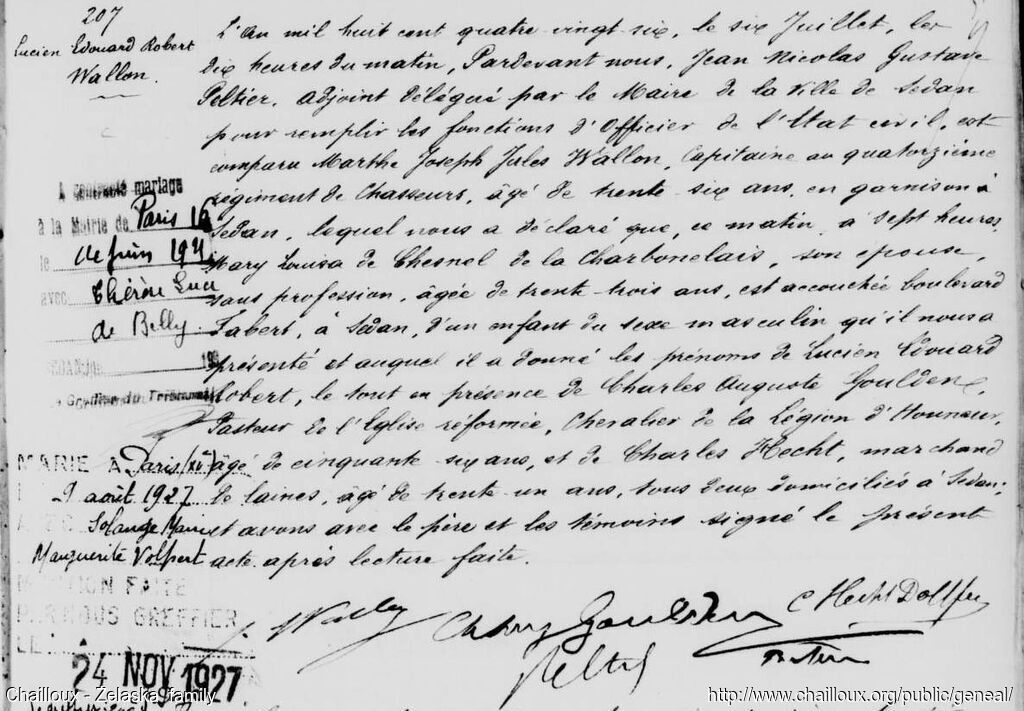 207
Lucien Edouard Robert
Wallon.
L'An mil huit cent quatre vingt six, le six Juillet, les
dix heures du matin, Pardevant nous, Jean Nicolas Gustave
Peltier, adjoint délégué par le Maire de la ville de Sedan
pour remplir les fonctions d'Officier de l'Etat civil, est
comparu Marthe Joseph Jules Wallon, Capitaine au quatorzième
régiment de Chasseurs, âgé de trente six ans, en garnison à
Sedan, lequel nous a déclaré que, ce matin, à sept heures,
Mary Louisa de Chesnel de la Charbonelais, son épouse,
sans profession, âgée de trente trois ans, est accouchée boulevard
Fabert, à Sedan, d'un enfant du sexe masculin qu'il nous a
présenté et auquel il a donné les prénoms de Lucien Edouard
Robert, le tout en présence de Charles Auguste Goulden,
Pasteur de l'Eglise réformée, Chevalier de la Légion d'Honneur,
âgé de cinquante six ans, et de Charles Hecht, marchand
de laines, âgé de trente un ans, tous deux domiciliés à Sedan;
et avons avec le père et les témoins signé le présent
acte après lecture faite.
A contracté mariage
à la Mairie de Paris 16
le
avec Thérèse Luce
de Billy
Greffier du Tribunal
MARIE A Paris
9 août 1927
Solange
Marguerite Volpert
MENTION FAITE
PAR NOUS GREFFIER
LE
24 NOV 1927
C Hecht Dollfus
Peltier
Chailloux - Zelaska family
http://www.chailloux.org/public/geneal/